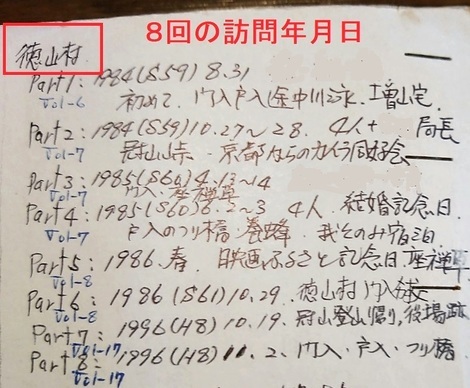 8回の訪問年月日
徳山村
Part1: 1984(S59) 8.31
Vol-6 初めて、門入戸入途中川泳、増山宅
Part2: 1984(S59) 10.27〜28. 4人+ 局長
Vol-7 冠山 京都ならのカメラ同好会
Part3: 1985(S60) 4.13〜14
Vol-7 門入、座禅草
Part4: 1985(S60) 6.2〜3 4人 結婚記念日
Vol-7 戸入のつり橋・養蜂 宿泊
Part5: 1986.春 映画ふるさと記念日.座禅草
Vol-8
Part6: 1986(S61) 10.29. 徳山村門入
Vol-8
Part7: 1996(H8) 10.19. 冠山登山帰り、役場跡
Vol-17
Part8: 1996(H8) 11.2. 門入・戸入・つり橋
Vol-17